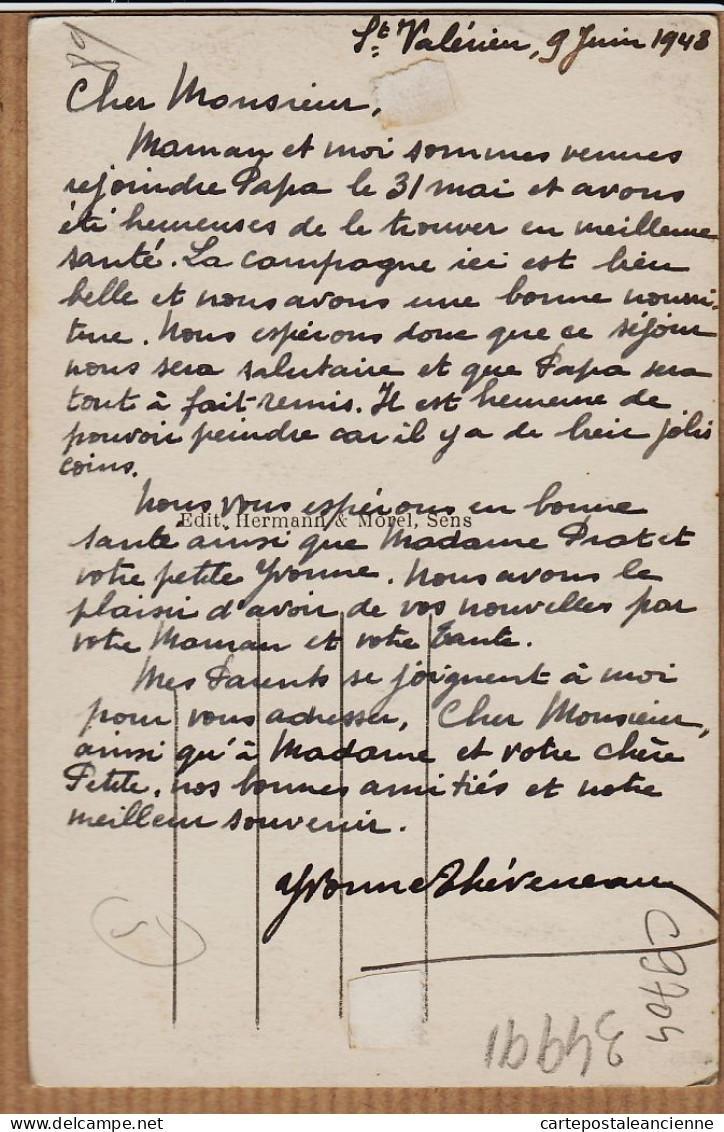 89
St Valérien, 9 Juin 1948
Cher Monsieur,
Maman et moi sommes venues
rejoindre Papa le 31 mai et avons
été heureuses de le trouver en meilleure
santé. La campagne ici est bien
belle et nous avons une bonne nourri-
ture. Nous espérons donc que ce séjour
nous sera salutaire et que Papa sera
tout à fait remis. Il est heureux de
pouvoir peindre car il y a de bien jolis
coins.
Nous vous espérons en bonne
Edit. Hermann & Morel, Sens
santé ainsi que Madame Prat et
votre petite Yvonne. Nous avons le
plaisir d'avoir de vos nouvelles par
votre Maman et votre tante.
Mes Parents se joignent à moi
pour vous adresser, Cher Monsieur,
ainsi qu'à Madame et votre chère
Petite, nos bonnes amitiés et notre
meilleur souvenir.
Yvonne Théveneau
C9704
34991
cartepostaleancienne